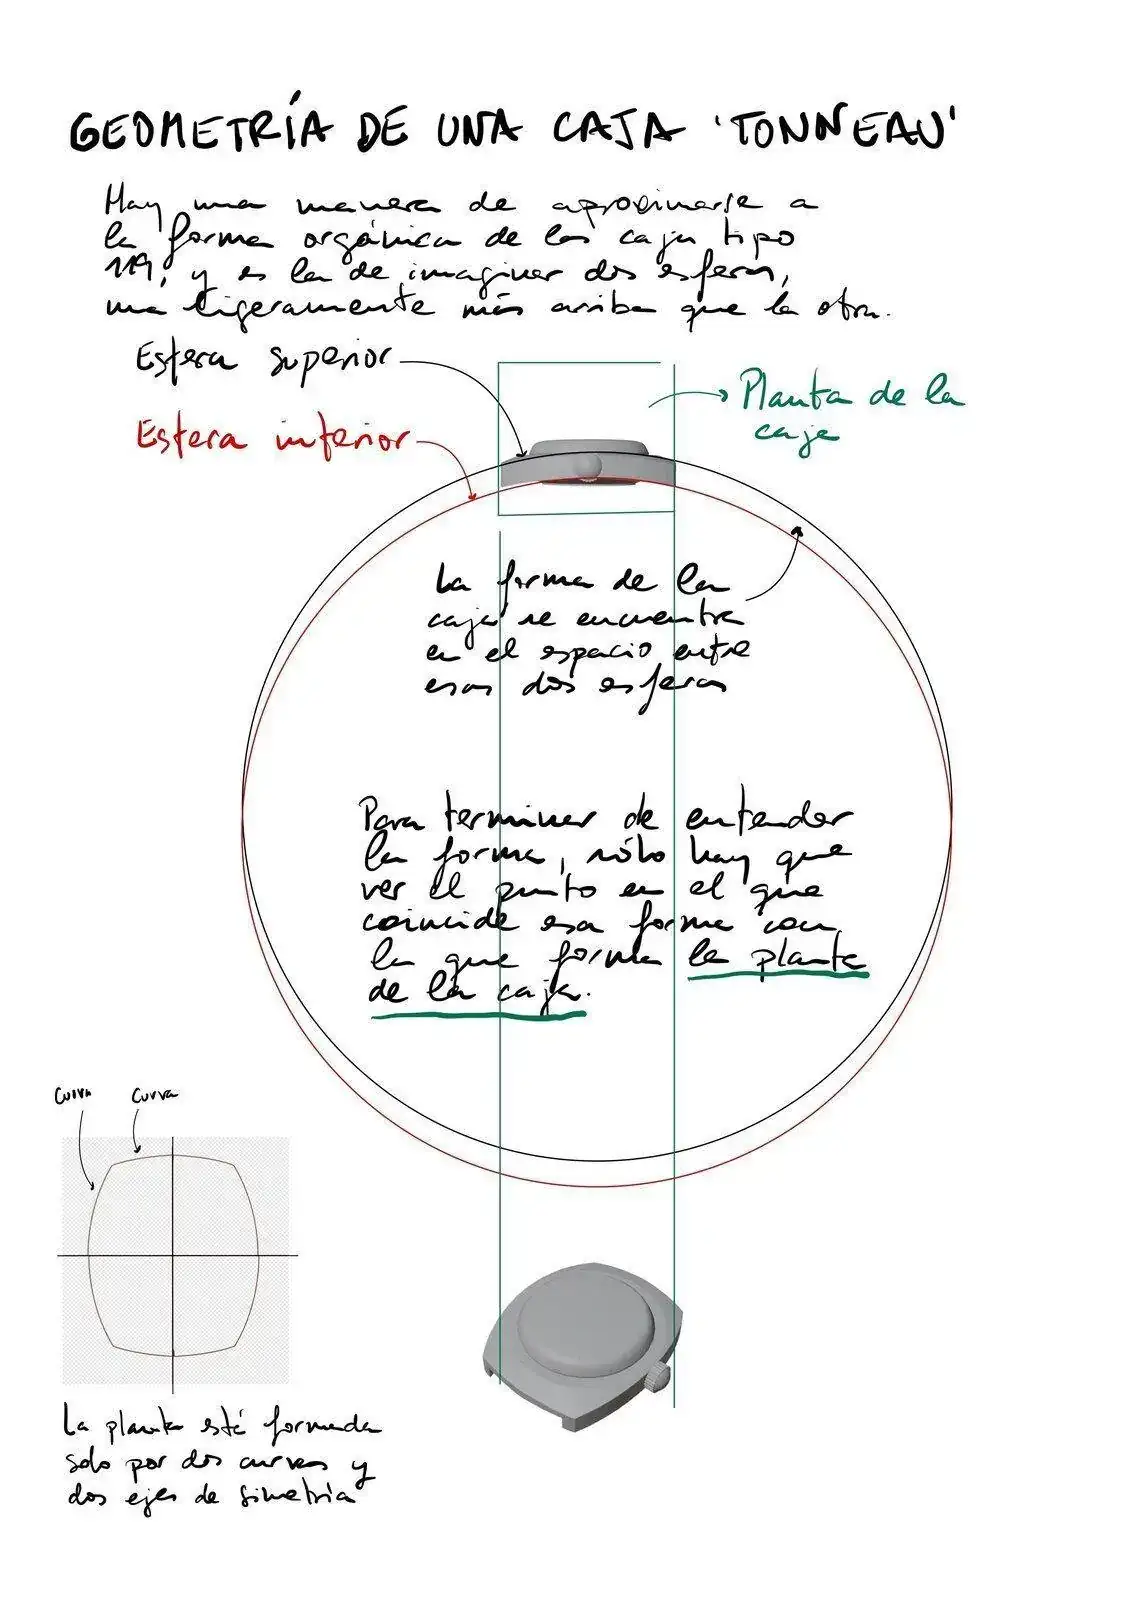 GEOMETRÍA DE UNA CAJA 'TONNEAU'
Hay una manera de aproximarse a
la forma orgánica de las cajas tipo
119, y es la de imaginar dos esferas,
una ligeramente más arriba que la otra.
Esfera superior
Planta de la
caja
Esfera inferior
La forma de la
caja se encuentra
en el espacio entre
esas dos esferas
Para terminar de entender
la forma, sólo hay que
ver el punto en el que
coincide esa forma con
la que forma la planta
de la caja.
Curva Curva
La planta está formada
solo por dos curvas y
dos ejes de simetría